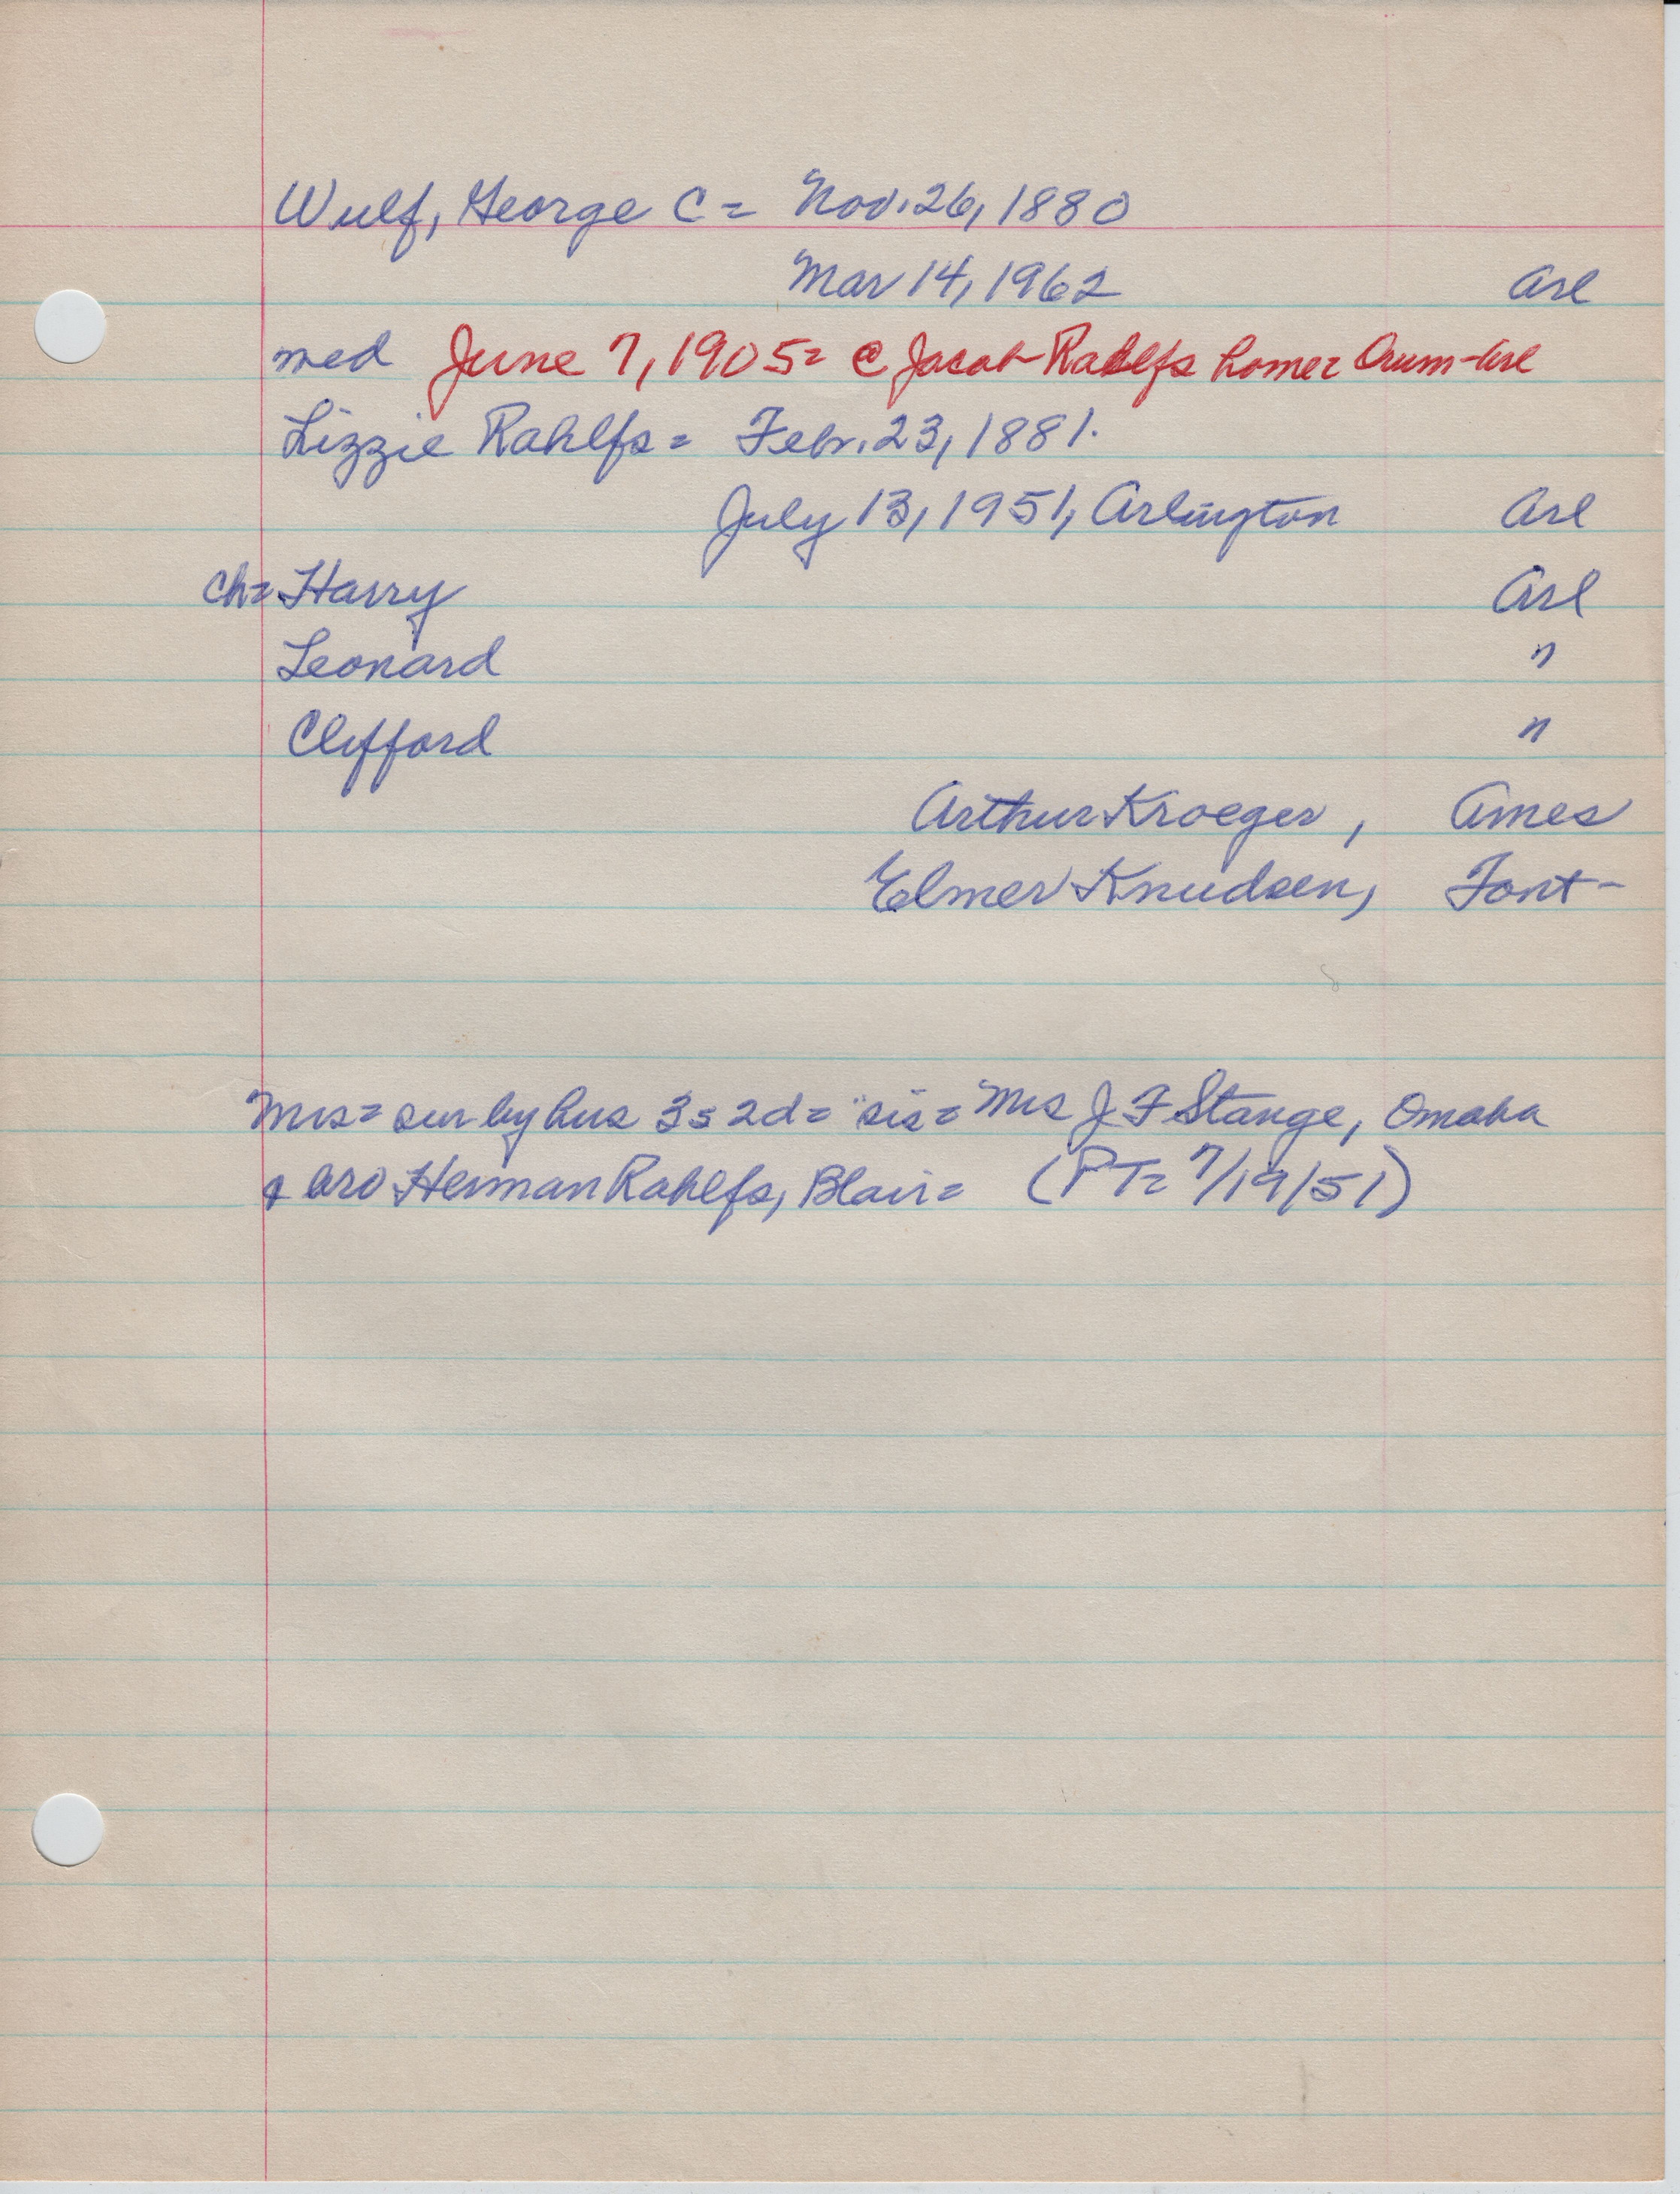 Wulf, George C = Nov. 26, 1880
Mar 14, 1962 Arl
med June 7, 1905 = @ Jacob Rahlfs home = Orum - Arl
Lizzie Rahlfs = Febr. 23, 1881.
July 13, 1951, Arlington Arl
Ch = Harry Arl
Leonard "
Clifford "
Arthur Kroeger, Ames
Elmer Knudsen, Font-
Mrs = sur by hus 3s 2d = sis = Mrs J F Stange, Omaha
& bro Herman Rahlfs, Blair = (PT = 7/19/51)